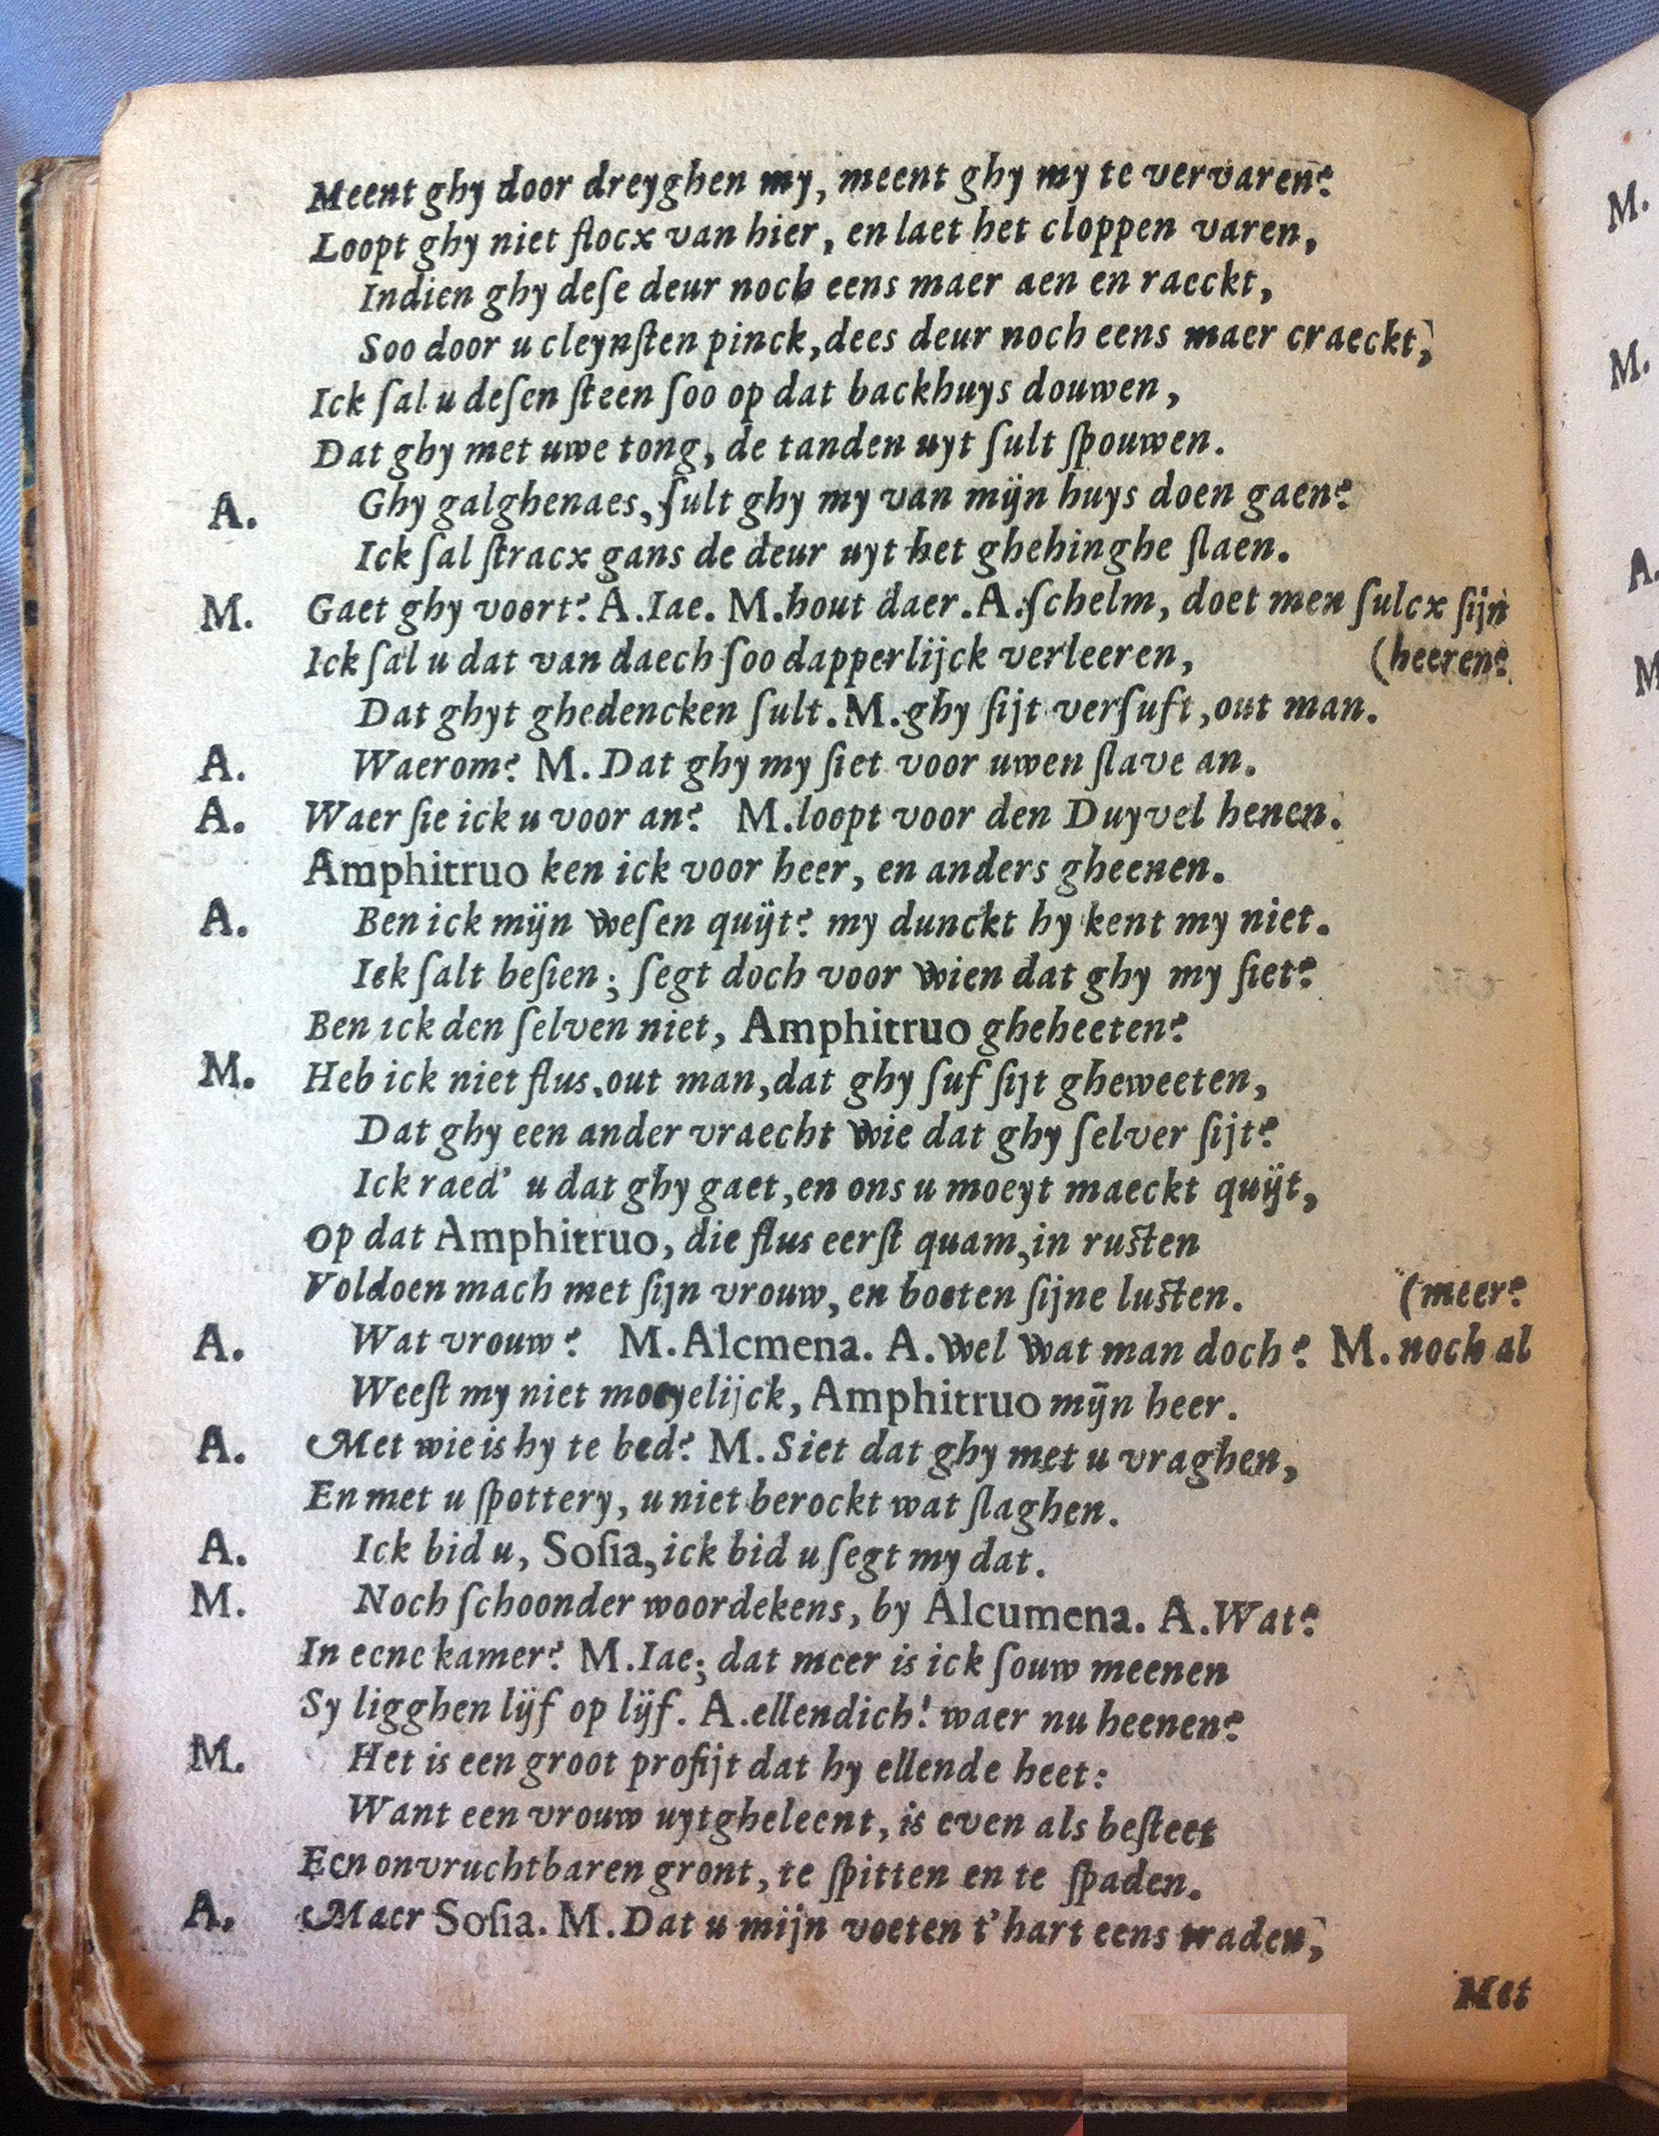 Meent ghy door dreyghen my, meent ghy my te vervaren?
Loopt ghy niet flocx van hier, en laet het cloppen varen,
Indien ghy deſe deur noch eens maer aen en raeckt,
Soo door u cleynſten pinck, dees deur noch eens maer craeckt,
Ick ſal u deſen ſteen ſoo op dat backhuys douwen,
Dat ghy met uwe tong, de tanden uyt ſult ſpouwen.
A. Ghy galghenaes, ſult ghy my van mijn huys doen gaen?
Ick ſal ſtracx gans de deur uyt het ghehinghe ſlaen.
M. Gaet ghy voort? A. Iae. M. hout daer. A. ſchelm, doet men ſulcx ſijn
Ick ſal u dat van daech ſoo dapperlijck verleeren, (heeren?
Dat ghyt ghedencken ſult. M. ghy ſijt verſuft, out man.
A. Waerom? M. Dat ghy my ſiet voor uwen ſlave an.
A. Waer ſie ick u voor an? M. loopt voor den Duyvel henen.
Amphitruo ken ick voor heer, en anders gheenen.
A. Ben ick mijn weſen quijt? my dunckt hy kent my niet.
Ick ſalt beſien; ſegt doch voor wien dat ghy my ſiet?
Ben ick den ſelven niet, Amphitruo gheheeten?
M. Heb ick niet flus, out man, dat ghy ſuf ſijt gheweeten,
Dat ghy een ander vraecht wie dat ghy ſelver ſijt?
Ick raed' u dat ghy gaet, en ons u moeyt maeckt quijt,
Op dat Amphitruo, die flus eerſt quam, in ruſten
Voldoen mach met ſijn vrouw, en boeten ſijne luſten. (meer?
A. Wat vrouw? M. Alcmena. A. wel wat man doch? M. noch al
Weeſt my niet moeyelijck, Amphitruo mijn heer.
A. Met wie is hy te bed? M. Siet dat ghy met u vraghen,
En met u ſpottery, u niet berockt wat ſlaghen.
A. Ick bid u, Soſia, ick bid u ſegt my dat.
M. Noch ſchoonder woordekens, by Alcumena. A. Wat?
In eene kamer? M. Iae; dat meer is ick ſouw meenen
Sy ligghen lijf op lijf. A. ellendich! waer nu heenen?
M. Het is een groot profijt dat hy ellende heet:
Want een vrouw uytgheleent, is even als beſteet
Een onvruchtbaren gront, te ſpitten en te ſpaden.
A. Maer Soſia. M. Dat u mijn voeten t'hart eens traden,
Met